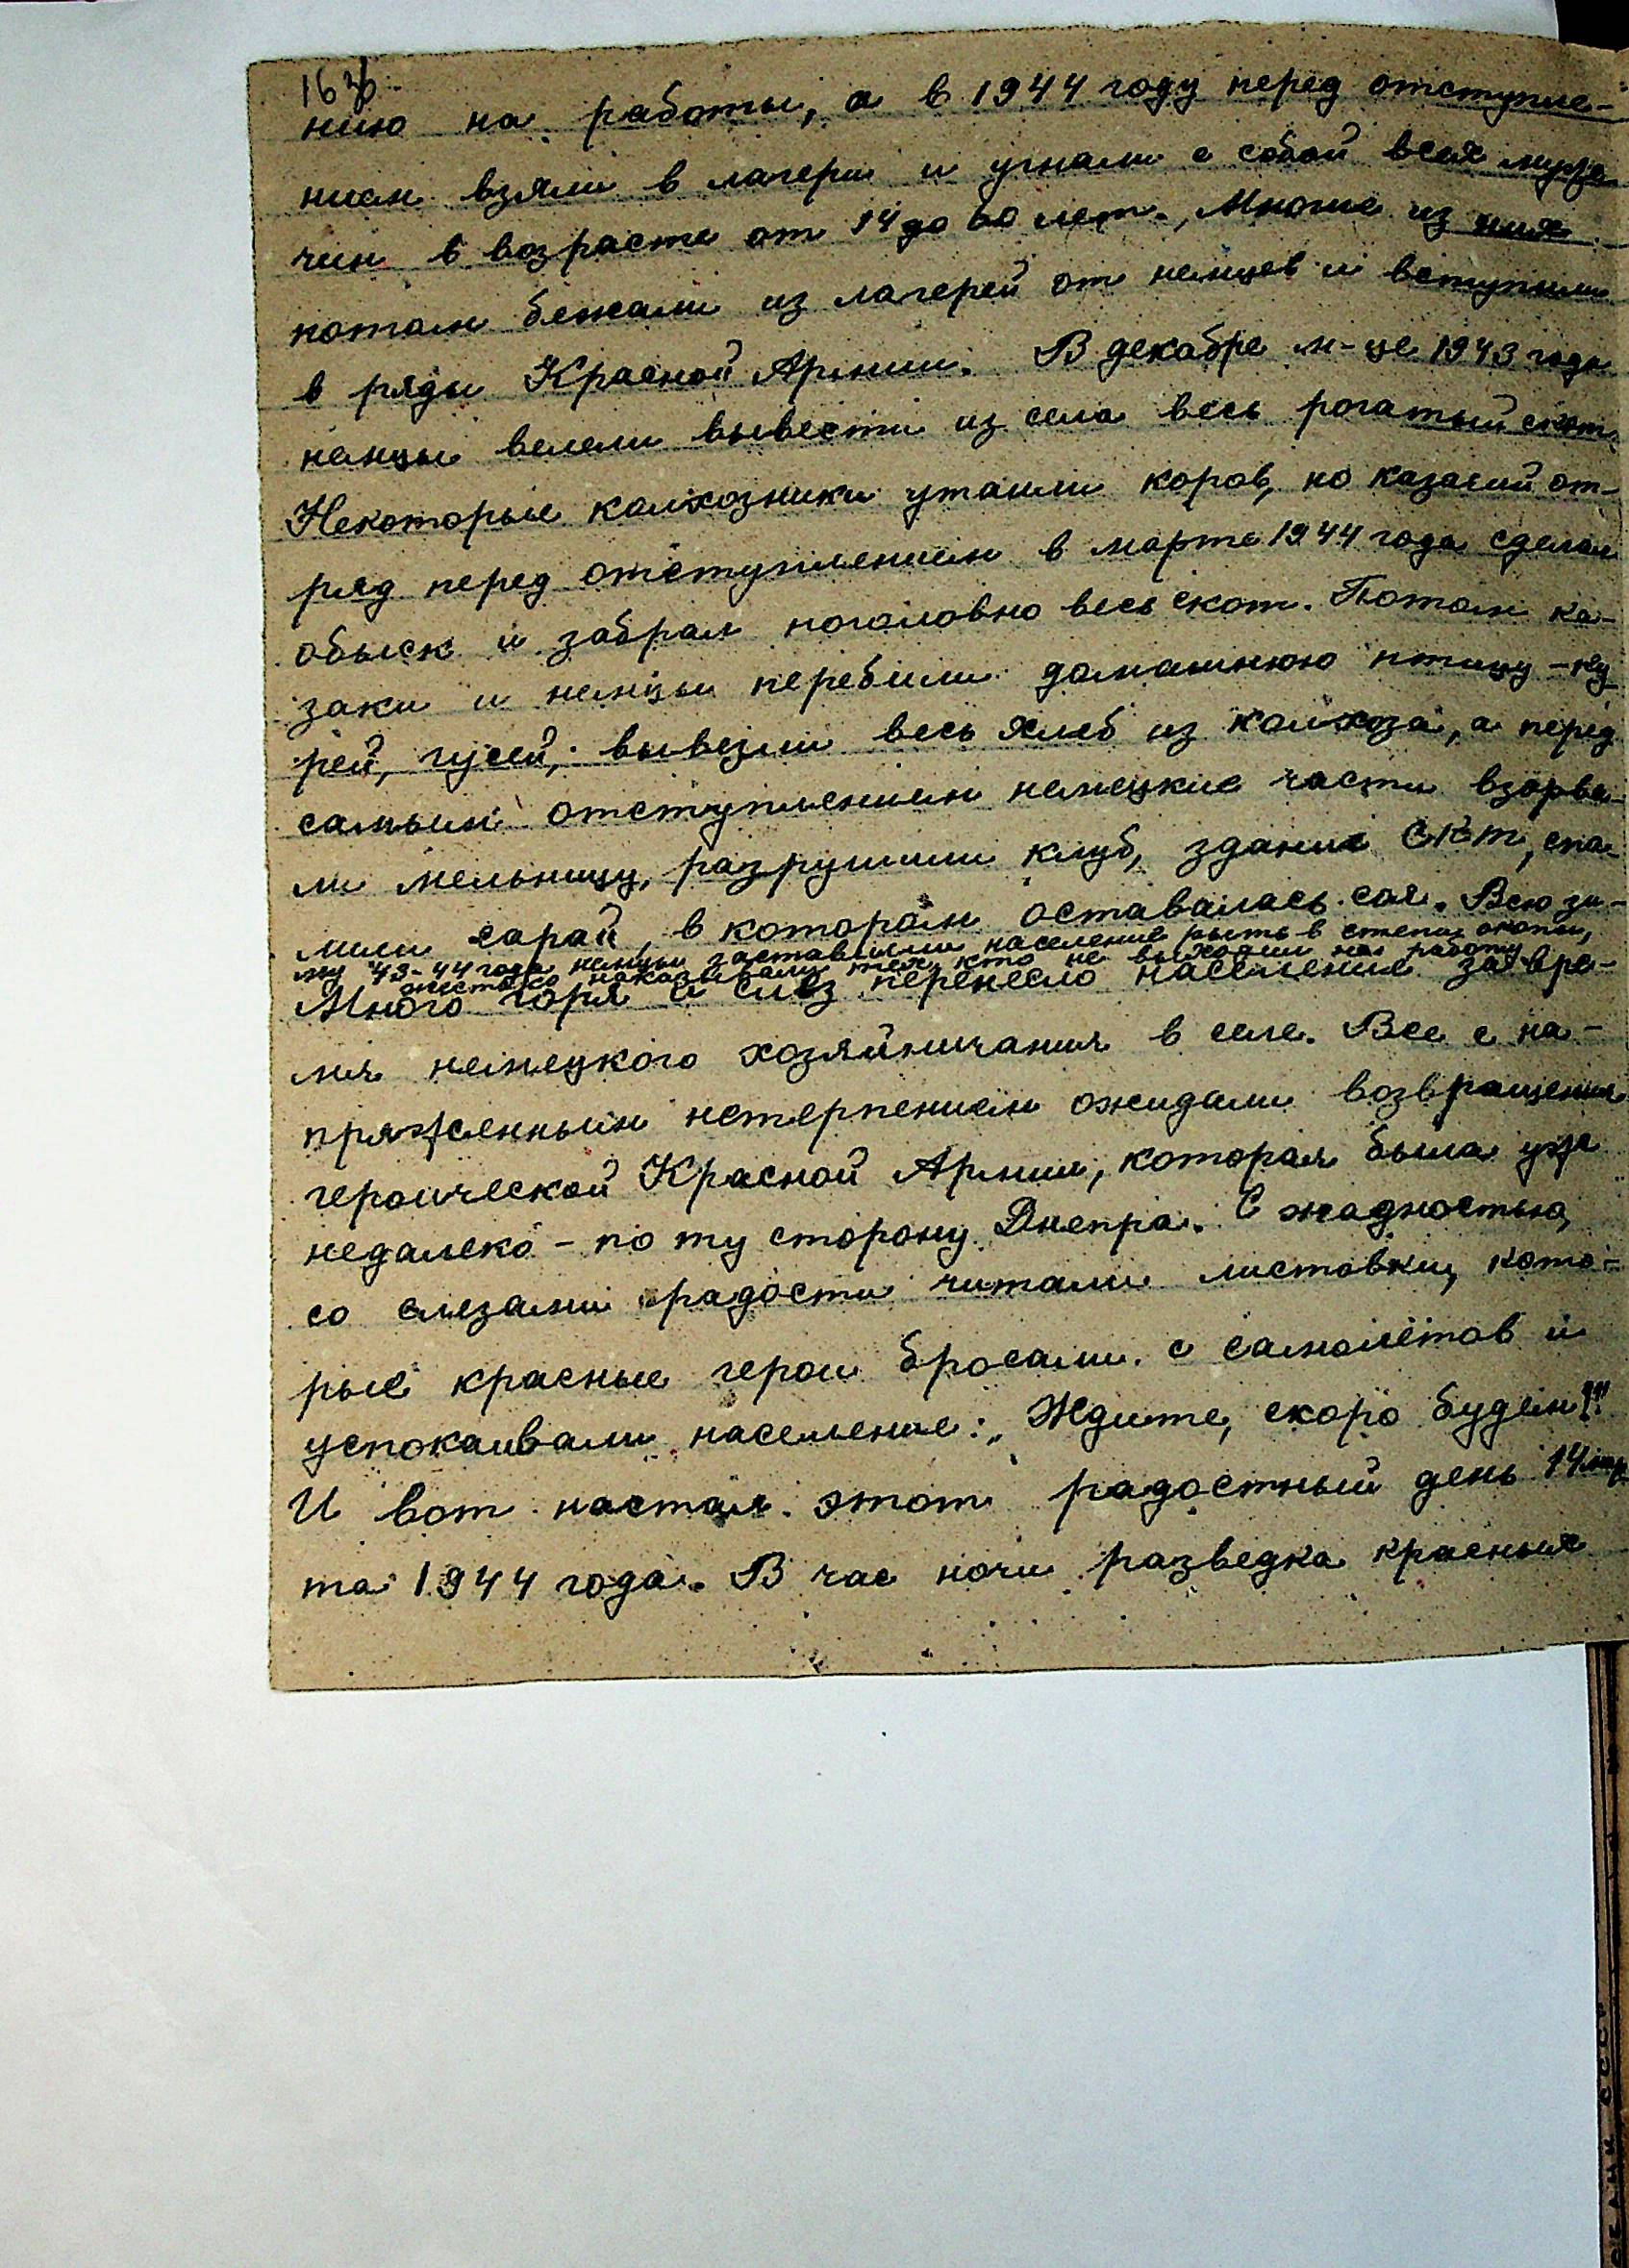 163б.
нию на работы, а в 1944 году перед отступле-
нием взяли в лагери и угнали с собой всех мужс
чин в возрасте от 14 до 60 лет. Многие из них
потом бежали из лагерей от немцев и вступили
в ряды Красной Армии. В декабре м-це 1943 года
немцы велели вывести из села весь рогатый скот.
Некоторые колхозники утаили коров, но казачий от-
ряд перед отступлением в марте 1944 года сделал
обыск и забрал поголовно весь скот. Потом ка-
заки и немцы перебили домашнюю птицу - ку
рей, гусей, вывезли весь хлеб из колхоза, а перед
самым отступлением немецкие части взорва-
ли мельницу, разрушили клуб, здание спа-
лили сарай, в котором оставалась соя. Всю зи-
му 43-44 года немцы заставляли население рыть в степи окопы,
жестоко наказывали тех, кто не выходили на работу.
Много горя и слез перенесло население за вре-
мя немецкого хозяйничания в селе. Все с на-
пряженным нетерпением ожидали возвращения
героической Красной Армии, которая была уже
недалеко - по ту сторону Днепра. С жадностью,
со слезами радости читали листовки, кото-
рые красные герои бросали с самолётов и
успокаивали население: „Ждите, скоро будем!"
И вот настал этот радостный день 14 мар
та 1944 года. В час ночи разведка красных